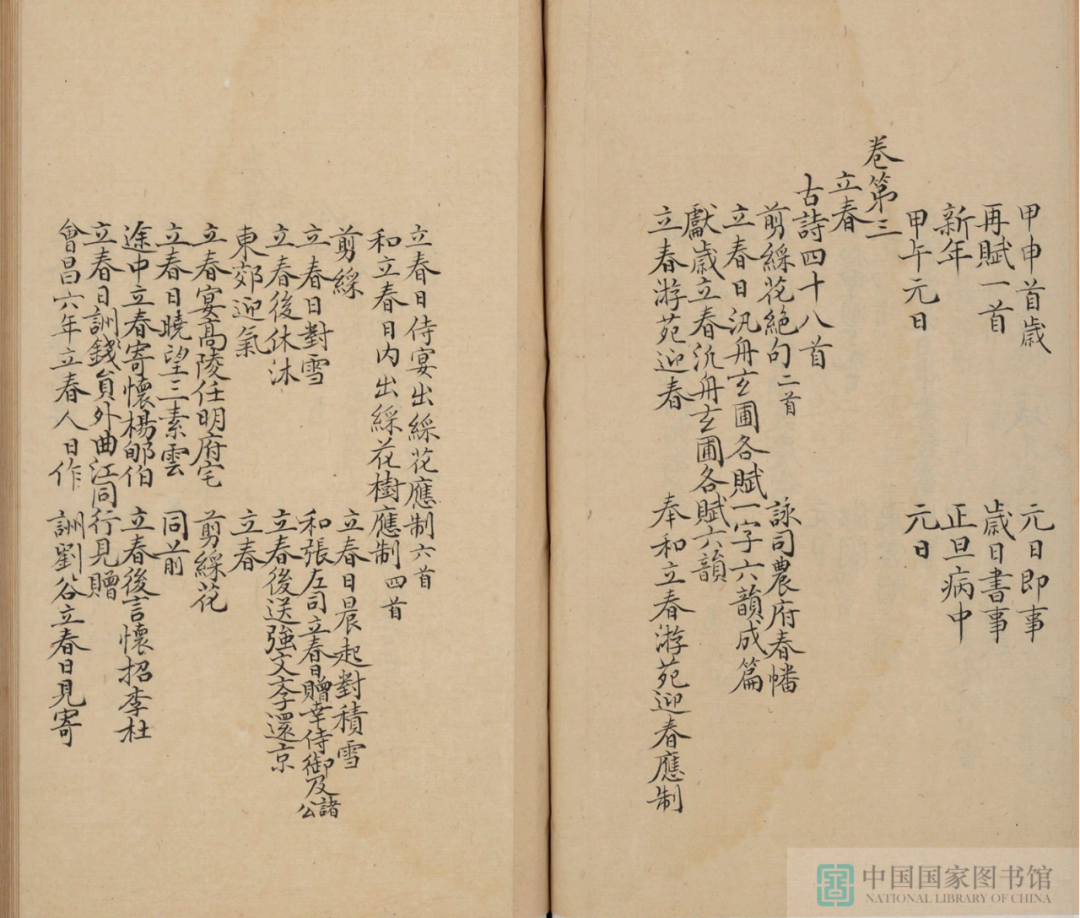 甲申首歳 元日即事
再賦一首 歳日書事
新年 正旦病中
甲午元日 元日
卷第三
立春
古詩四十八首
剪綵花絶句二首 詠司農府春幡
立春日汎舟玄圃各賦一字六韻成篇
獻歲立春汎舟玄圃各賦六韻
立春游苑迎春 奉和立春游苑迎春應制
立春日侍宴出綵花應制六首
和立春日內出綵花樹應制四首
剪綵 立春日晨起對積雪
立春日對雪 和張左司立春日贈韋侍御及諸公
立春後休沐 立春後送強文李還京
東郊迎氣 立春
立春宴高陵任明府宅 剪綵花
立春日曉望三素雲 同前
途中立春寄懷楊郇伯 立春後言懷招李杜
立春日詶錢員外曲江同行見贈
會昌六年立春人日作 詶劉谷立春日見寄
中国国家图书馆
NATIONAL LIBRARY OF CHINA